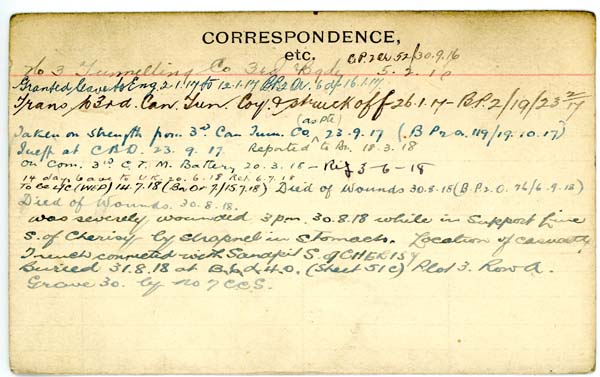 CORRESPONDENCE,
etc. B.P.2 Or 52/30.9.16
3 Tunnelling Co 3rd Bgde 5.2.16
Granted Leave to Eng 2.1.17 to 12.1.17 B.P.2 Or. 6 of 16.1.17
Trans to 3rd. Can. Tun Coy. & struck off 26.1.17 - B.P.2/19/23 2/17
(as pte)
Taken on strength from 3rd Can Tunn. Co. 23.9.17 (B P 2 O. 119/19.10.17)
Left at C.B.D. 23.9.17 Reported to Bn. 18.3.18
on Com. 3rd C.T.M. Battery, 20.3.18 - Rej 3-6-18
14 days Leave to U.K. 20.6.18 Ret 6.7.18
To be a/c (WEP) 14.7.18 (Bn Or 7/15.7.18) Died of Wounds 30.8.18 (B.P.2.O. 76/6.9.18)
Died of Wounds. 30.8.18.
was severely wounded 3 pm. 30.8.18 while in Support Line
S. of Cherisy by shrapnel in stomach. Location of casualty
Trench connected with Sandpit S. of CHERISY
Buried 31.8.18 at B.6.d.4.0. (Sheet 51C) Plot 3. Row A.
Grave 30. by No 7 CCS.